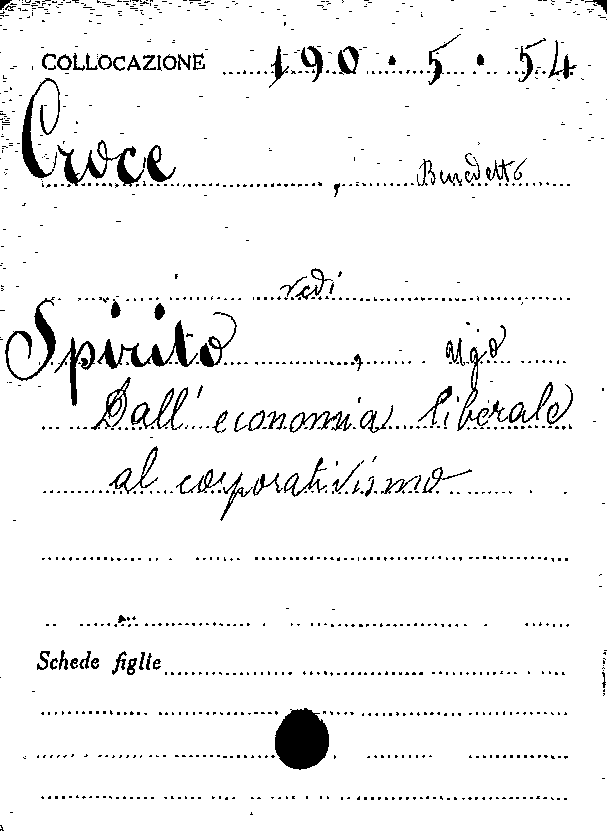 COLLOCAZIONE 190.5.54
Croce, Benedetto
vedi
Spirito, Ugo
Dall'economia liberale
al corporativismo
Schede figlie